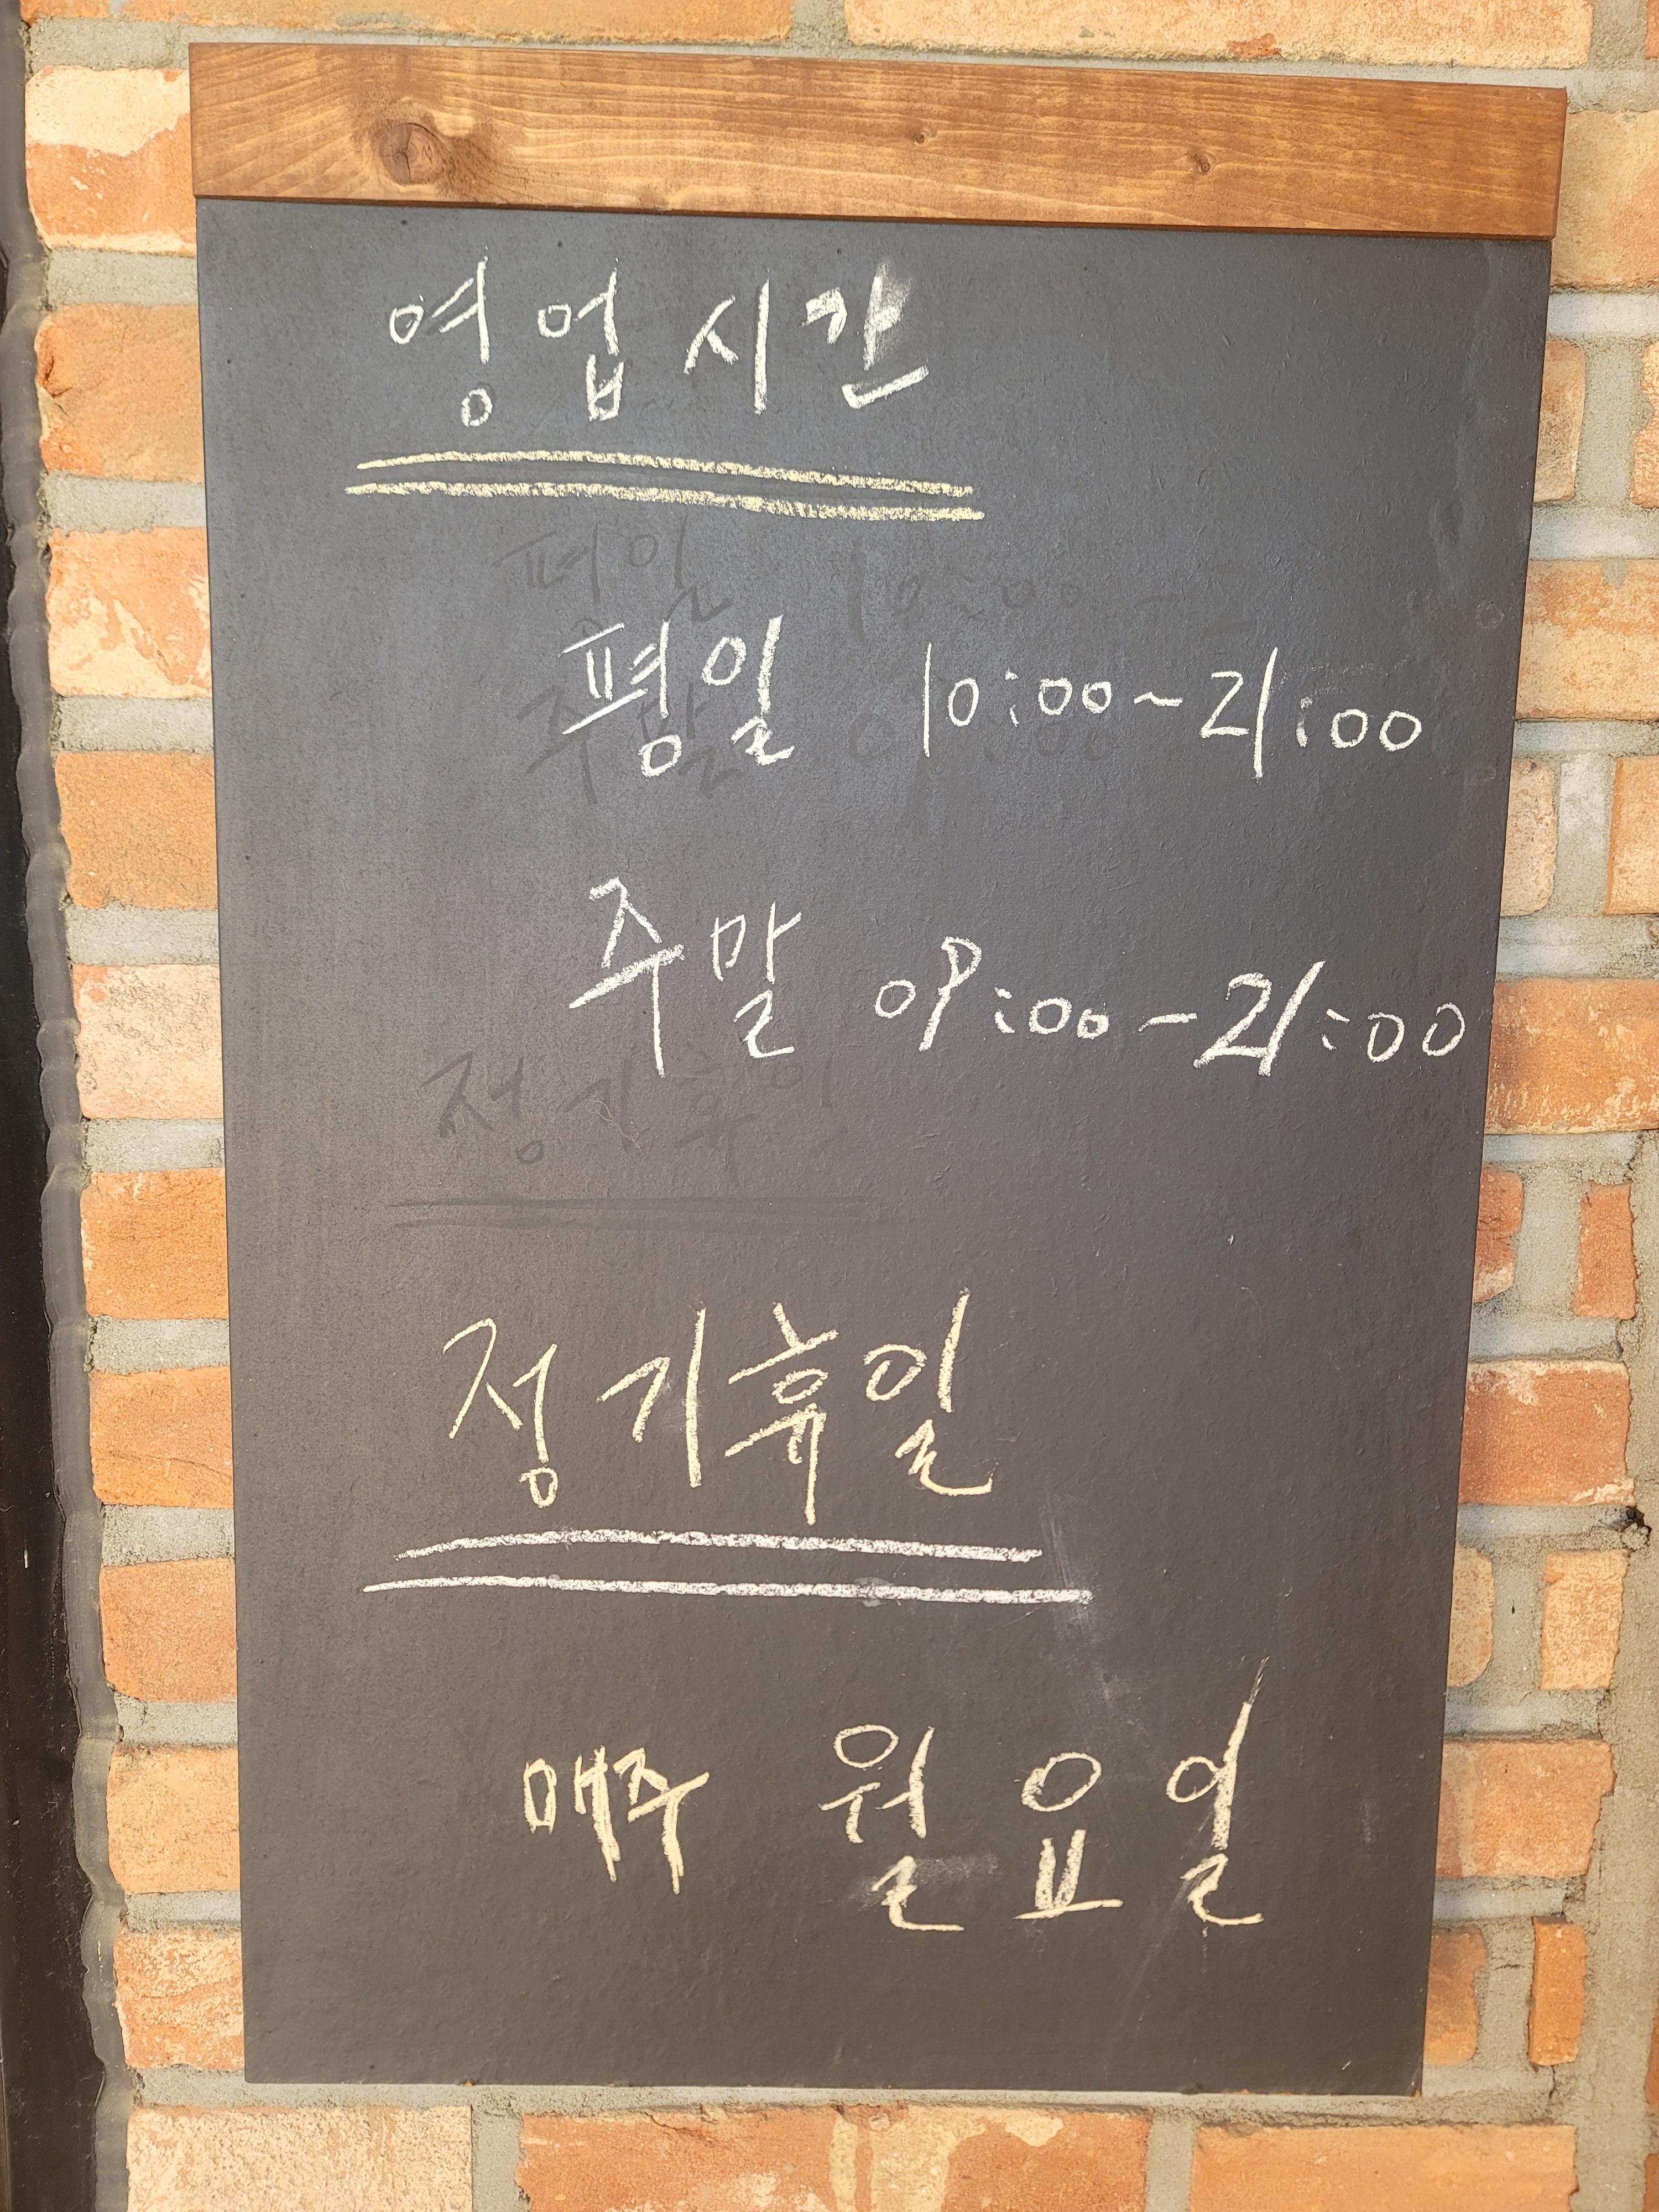 영업시간
평일 10:00~21:00
주말 09:00~21:00
정기휴일
매주 월요일